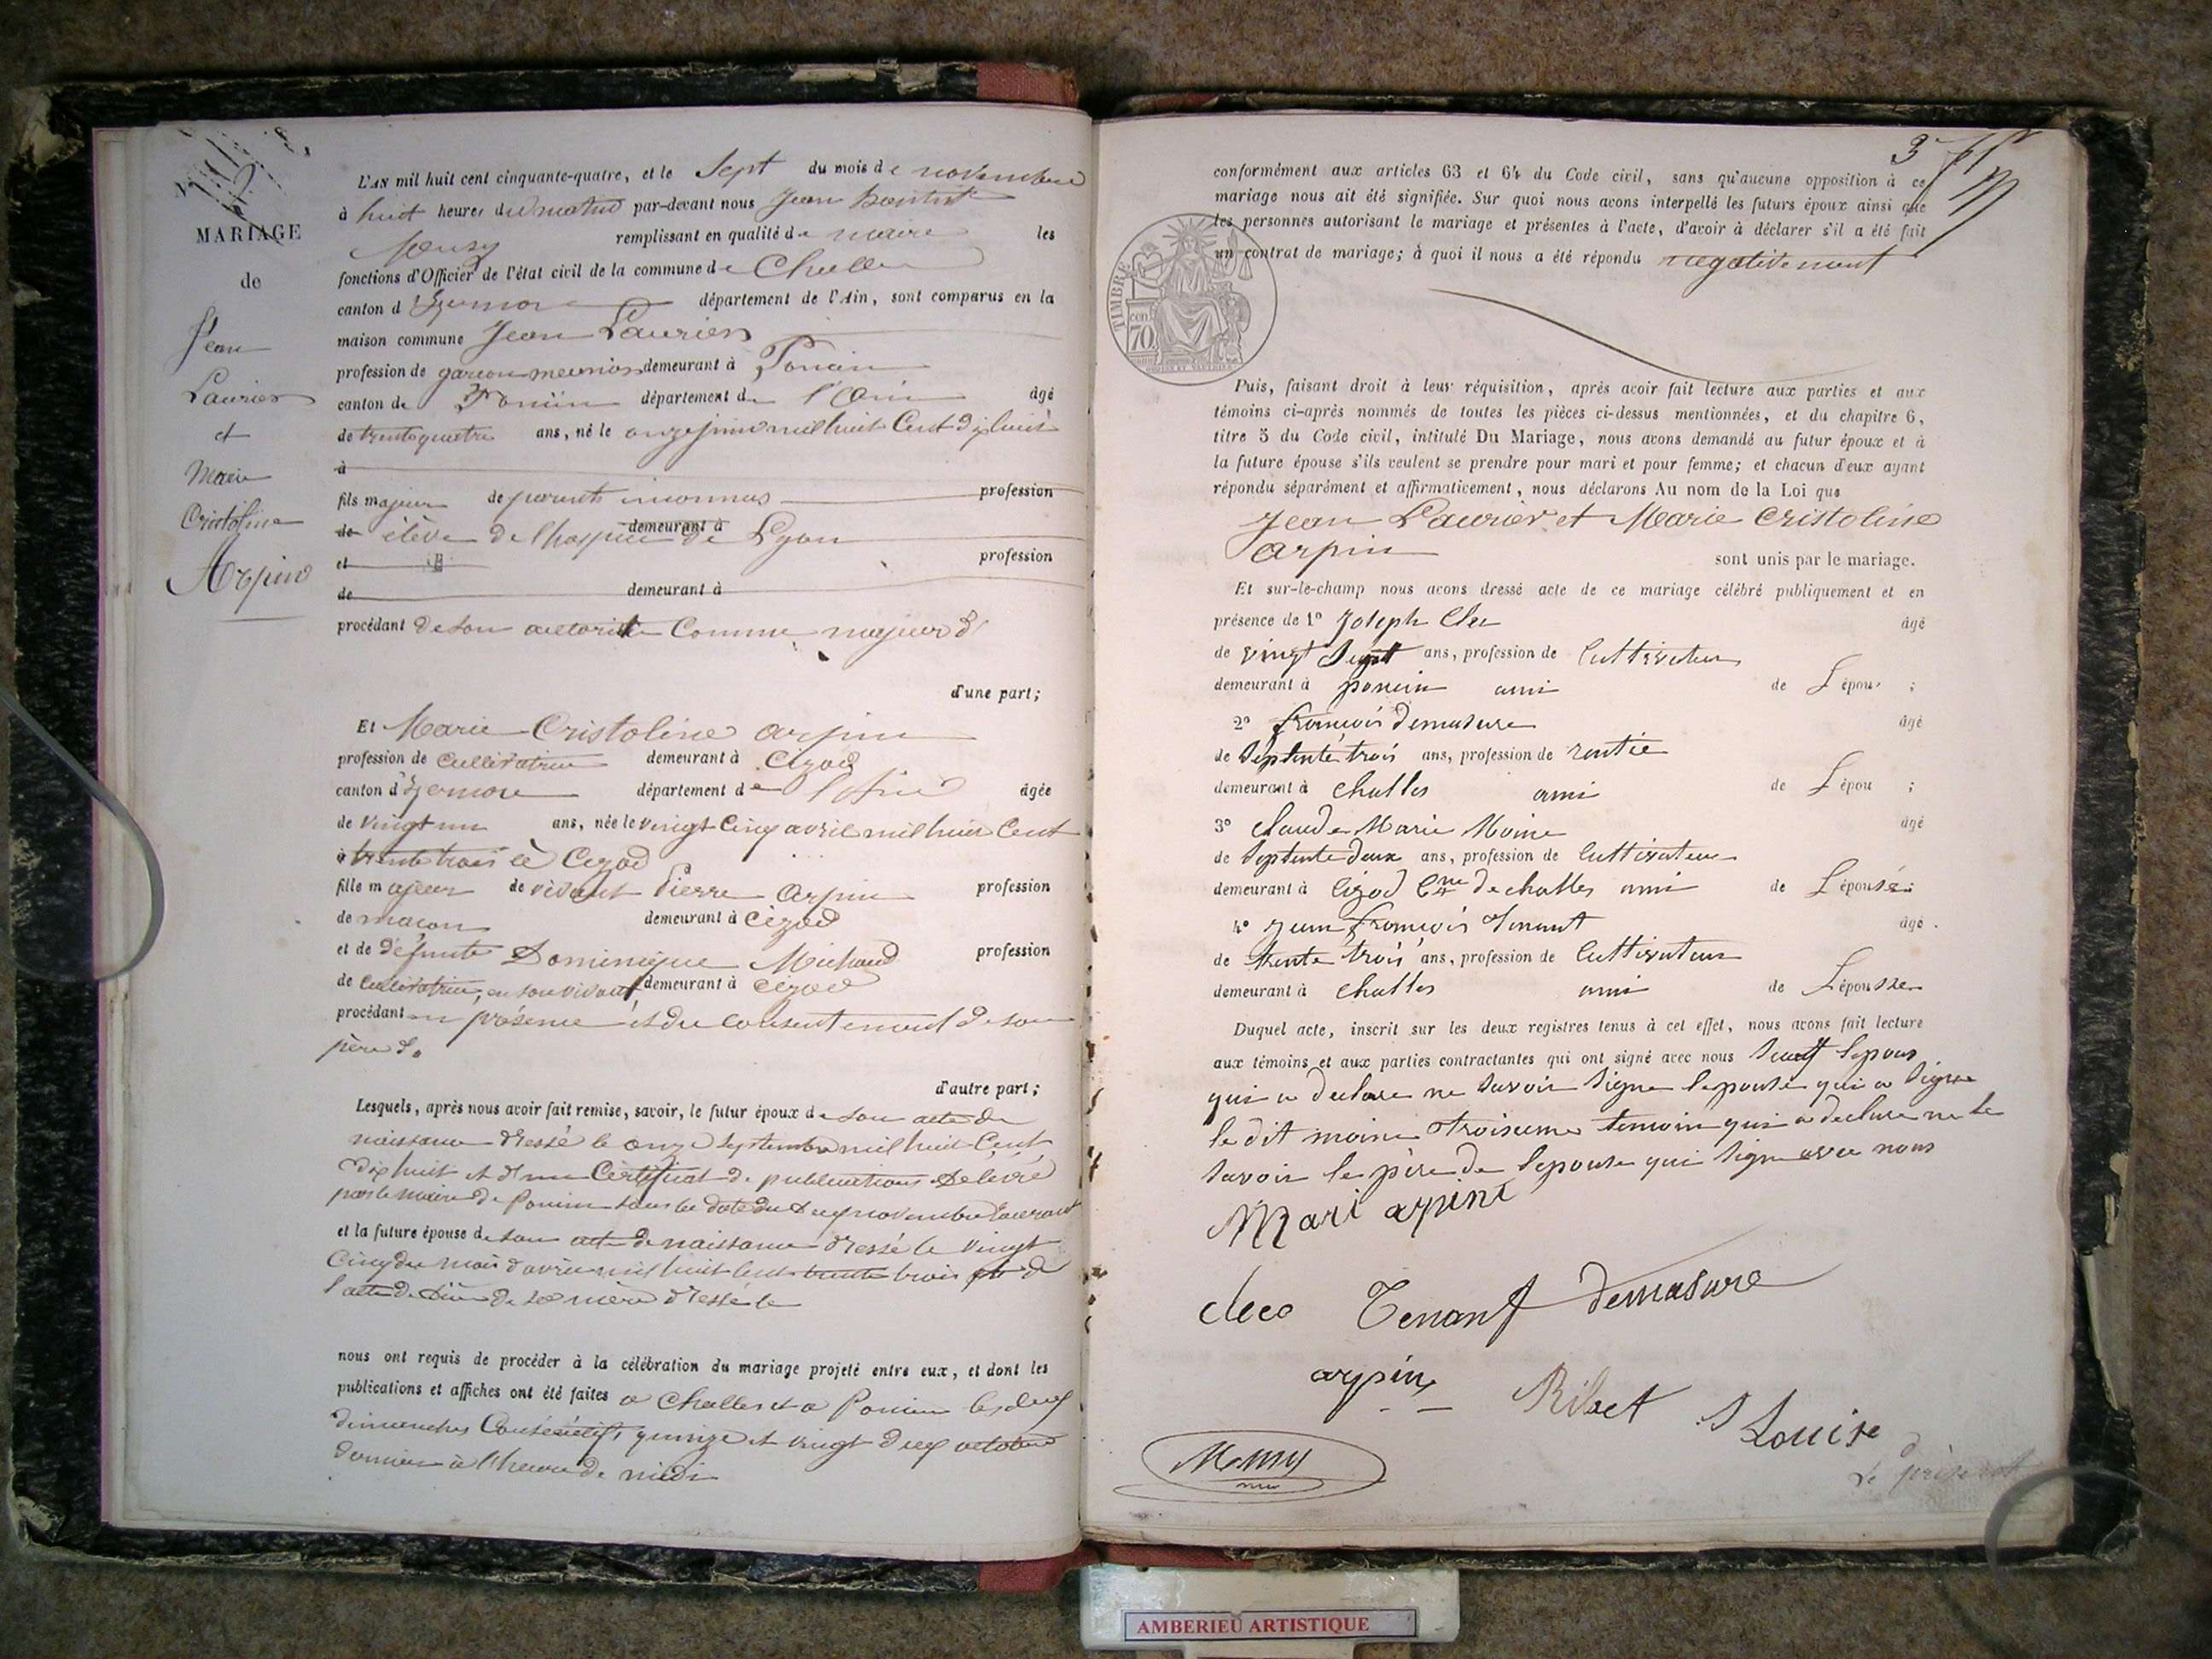 MARIAGE
de
Jean
Laurier
et
Marie
Cristoline
Arpin
L'AN mil huit cent cinquante-quatre, et le Sept du mois de novembre
à huit heures du matin par-devant nous Jean Baptiste
remplissant en qualité de maire les
fonctions d'Officier de l'état civil de la commune de Challes
canton d'Izernore département de l'Ain, sont comparus en la
maison commune Jean Laurier
profession de garcon meunier demeurant à Poncin
canton de Poncin département de l'Ain âgé
de trente quatre ans, né le onze mil huit Cent dix huit
à
fils majeur de parents inconnus profession
de élève de l'hospice de Lyon demeurant à
et profession
de demeurant à
procédant de son autorité Comme majeur d'
d'une part;
Et Marie Cristoline arpin
profession de cultivatrice demeurant à Cizod
canton d'Izernore département de l'Ain âgée
de vingt un ans, née le vingt Cinq avril mil huit Cent
trente trois à Cizod
fille majeur de vivant Pierre Arpin profession
de macon demeurant à Cizod
et de défunte Dominique Michaud profession
de cultivatrice, en son vivant demeurant à Cizod
procédant en présence et du consentement de son
père d.
d'autre part;
Lesquels, après nous avoir fait remise, savoir, le futur époux de son acte de
naissance dressé le onze septembre mil huit Cent
dix huit et d'un Certificat de publications Délivré
par le maire de Poncin sous la date du novembre Courant
et la future épouse de son acte de naissance dressé le vingt
Cinq du mois d'avril mil huit Cent trente trois et de
l'acte de Décès de sa mère dressé le
nous ont requis de procéder à la célébration du mariage projeté entre eux, et dont les
publications et affiches ont été faites a Challes et a Poncin les deux
dimanches Consécutifs quinze et vingt deux octobre
dernier à l'heure de midi
3
conformément aux articles 63 et 64 du Code civil, sans qu'aucune opposition à ce
mariage nous ait été signifiée. Sur quoi nous avons interpellé les futurs époux ainsi que
les personnes autorisant le mariage et présentes à l'acte, d'avoir à déclarer s'il a été fait
un contrat de mariage; à quoi il nous a été répondu negativement
TIMBRE
70
Puis, faisant droit à leur réquisition, après avoir fait lecture aux parties et aux
témoins ci-après nommés de toutes les pièces ci-dessus mentionnées, et du chapitre 6,
titre 5 du Code civil, intitulé Du Mariage, nous avons demandé au futur époux et à
la future épouse s'ils veulent se prendre pour mari et pour femme; et chacun d'eux ayant
répondu séparément et affirmativement, nous déclarons Au nom de la Loi que
Jean Laurier et Marie Cristoline
Arpin sont unis par le mariage.
Et sur-le-champ nous avons dressé acte de ce mariage célébré publiquement et en
présence de 1º Joseph âgé
de vingt Sept ans, profession de Cultivateur
demeurant à poncin ami de L'épou ;
2º francois demasure âgé
de Septente trois ans, profession de rentié
demeurant à challes ami de L'épou ;
3º claude Marie Moine âgé
de Septente deux ans, profession de Cultivateur
demeurant à Cizod Cne de challes ami de L'épousé;
4º jean francois Tenant âgé.
de trente trois ans, profession de Cultivateur
demeurant à challes ami de L'épousse
Duquel acte, inscrit sur les deux registres tenus à cet effet, nous avons fait lecture
aux témoins et aux parties contractantes qui ont signé avec nous Sauf lepoux
qui a declare ne savoir signe lepouse qui a signe
le dit moine troisieme temoin qui a declare ne le
savoir le père de lepouse qui signe avec nous
Mari arpine
Tenant demasure
arpin Ribaet Louise
AMBERIEU ARTISTIQUE